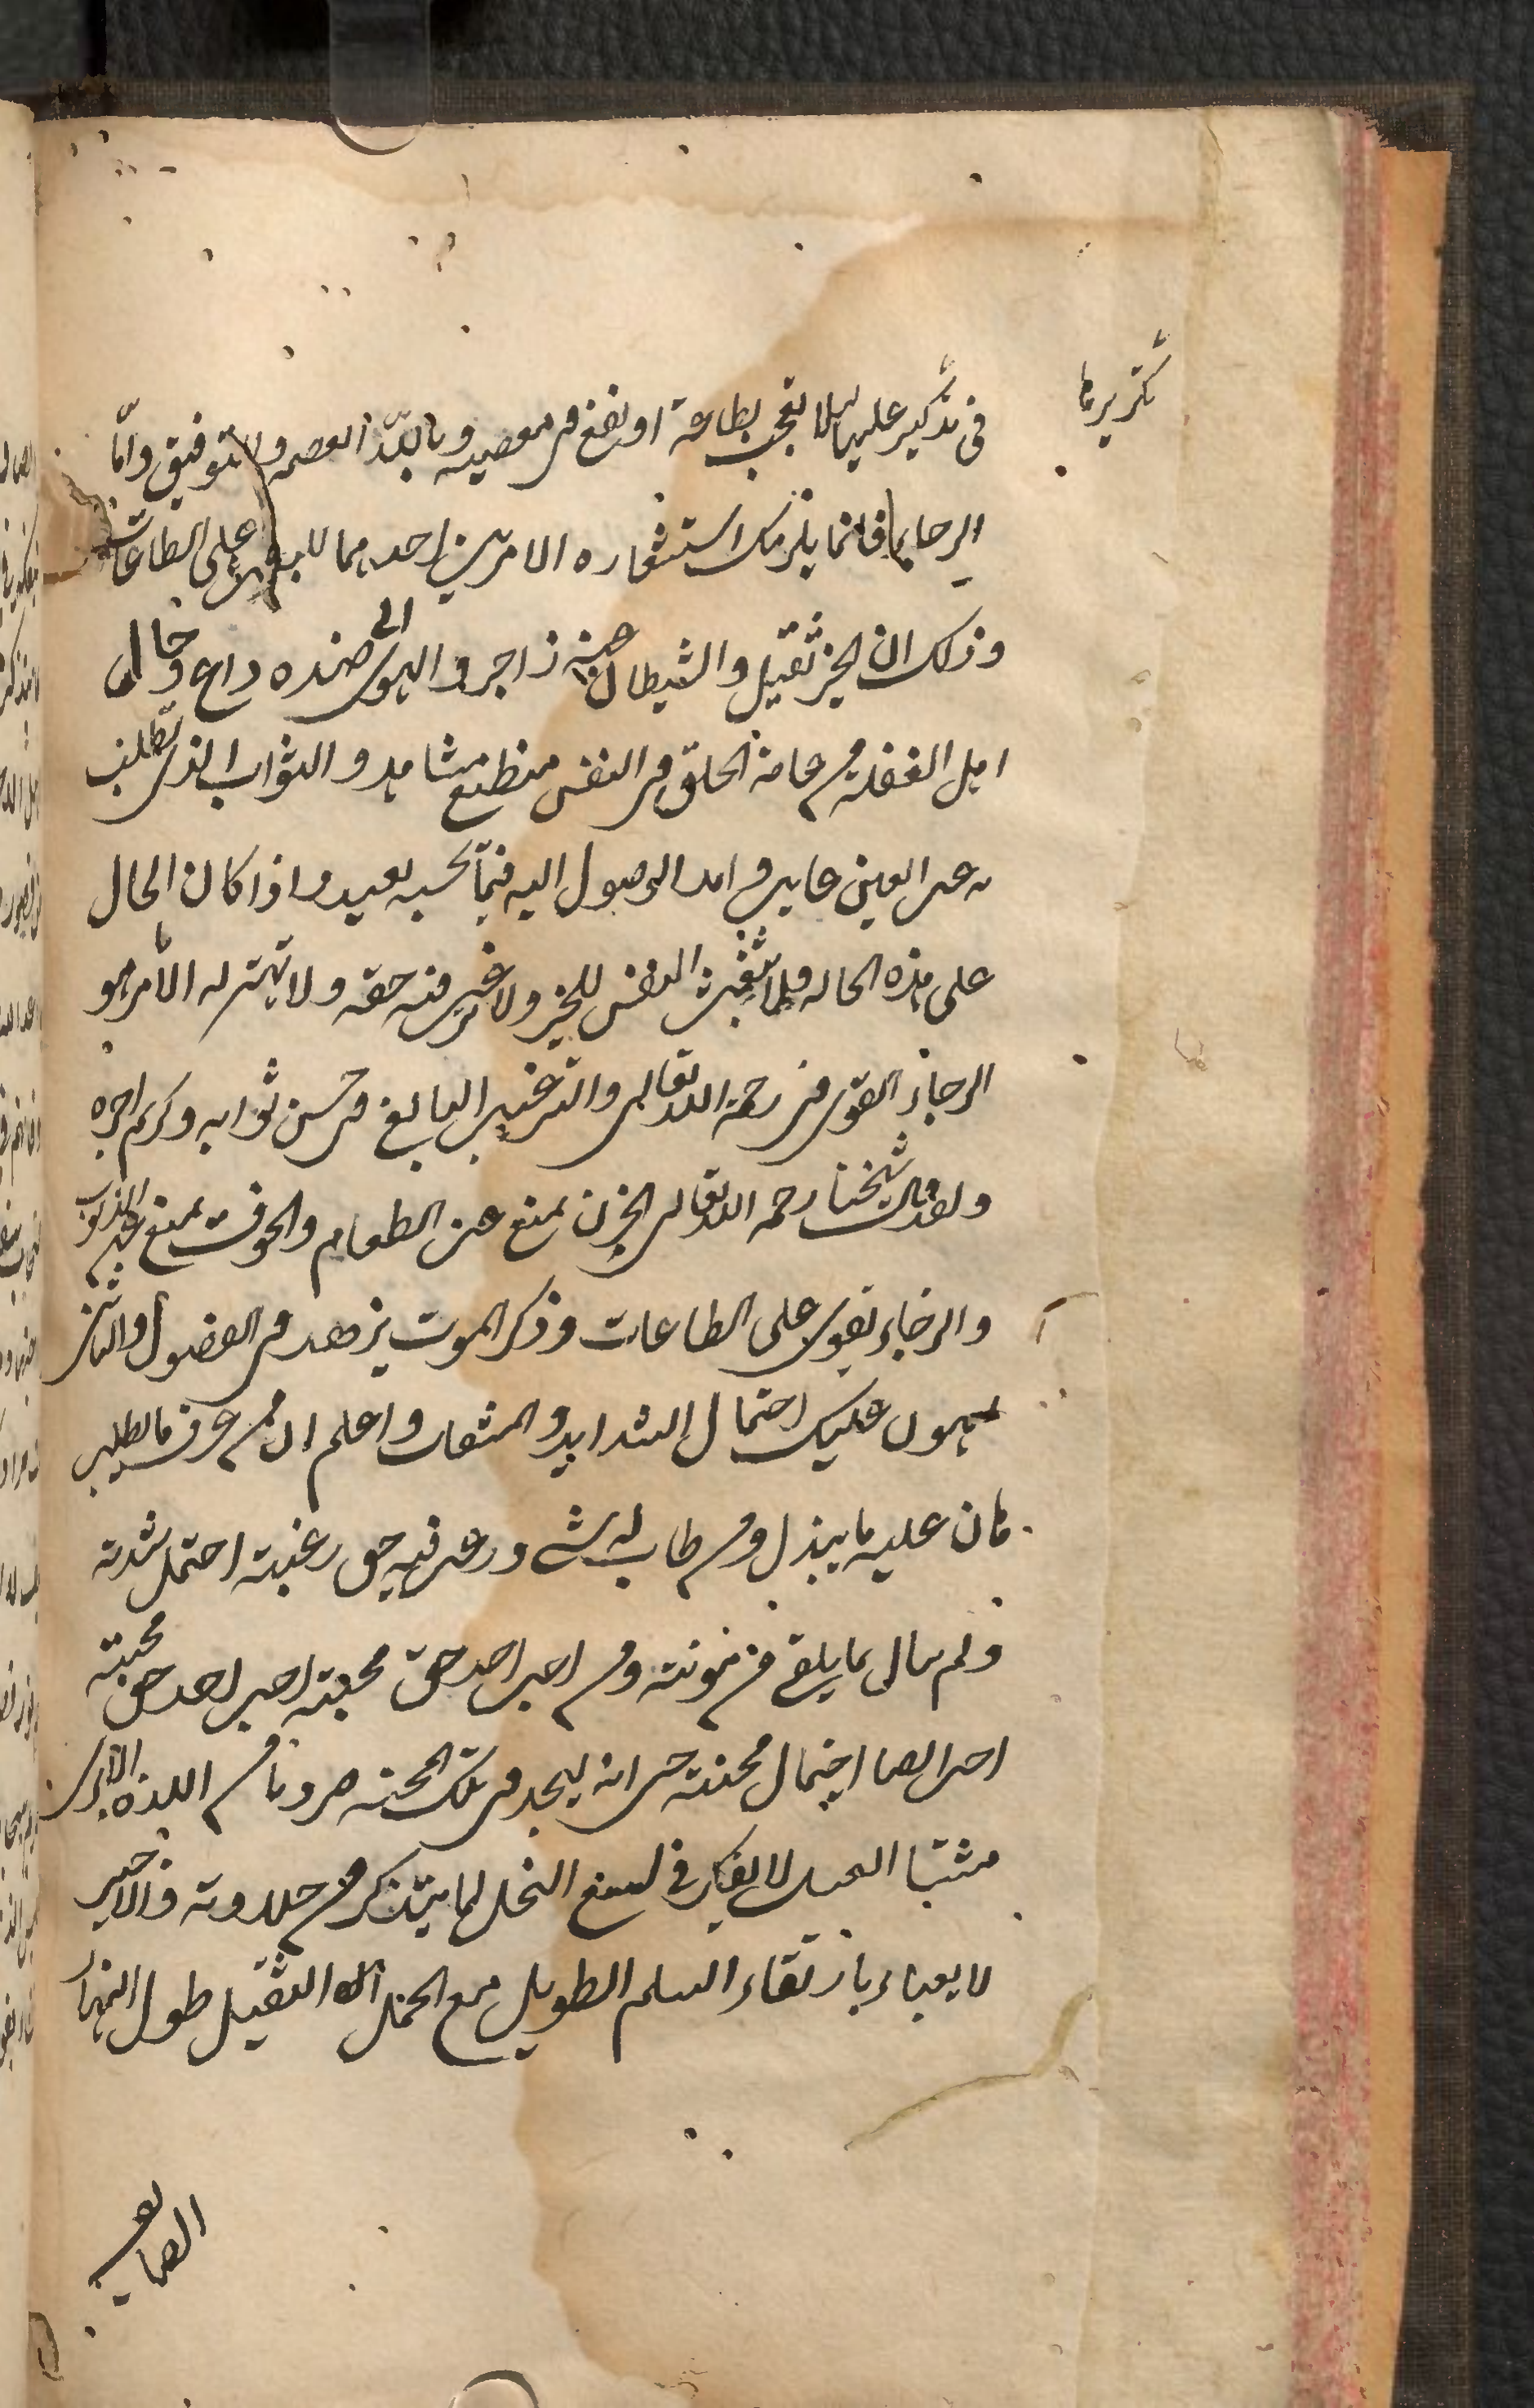 تكريرها
فى تذكير عليها لئلا تعجب بطاعة او تقع فى معصيه وبالله العصمه والتوفيق واما
الرجا فانما يلزمك استشعاره لامرين احدهما للبعث على الطاعات
وذلك ان الخير ثقيل والشيطان عنه زاجر والهوى الى ضده داع وحال
اهل الغفله من عامة الخلق فى النفس منطبع مشاهد والثواب الذى تطلب
عن العين غايب وامد الوصول اليه فيما تحسبه بعيد واذا كان الحال
على هذه الحاله فلا تنبعث النفس للخير ولا ترغب فيه حقه ولا تهتز له الا بامر هو
الرجاء القوى فى رحمة الله تعالى والترغيب البالغ فى حسن ثوابه وكريم اجره
ولقد قال شيخنا رحمه الله تعالى الحزن يمنع عن الطعام والخوف يمنع عن الذنوب
والرجاء يقوى على الطاعات وذكر الموت يزهد فى الفضول والثانى
يهون عليك احتمال الشدايد والمشقات واعلم ان من عرف ما يطلب
هان عليه ما يبذل ومن طاب له شى ورغب فيه حق رغبته احتمل شدته
ولم يبال بما يلقى من مونته ومن احب احد حق محبته احب احد حق محبته
احب ايضا احتمال محنته حتى انه ليجد فى تلك المحنه ضروبا من اللذه الا ترى
مشتار العسل لا يفكر فى لسع النحل لما يتذكر من حلاوته والاجير
لا يعباء بارتقاء السلم الطويل مع الحمل الثقيل طول النهار
الصايف